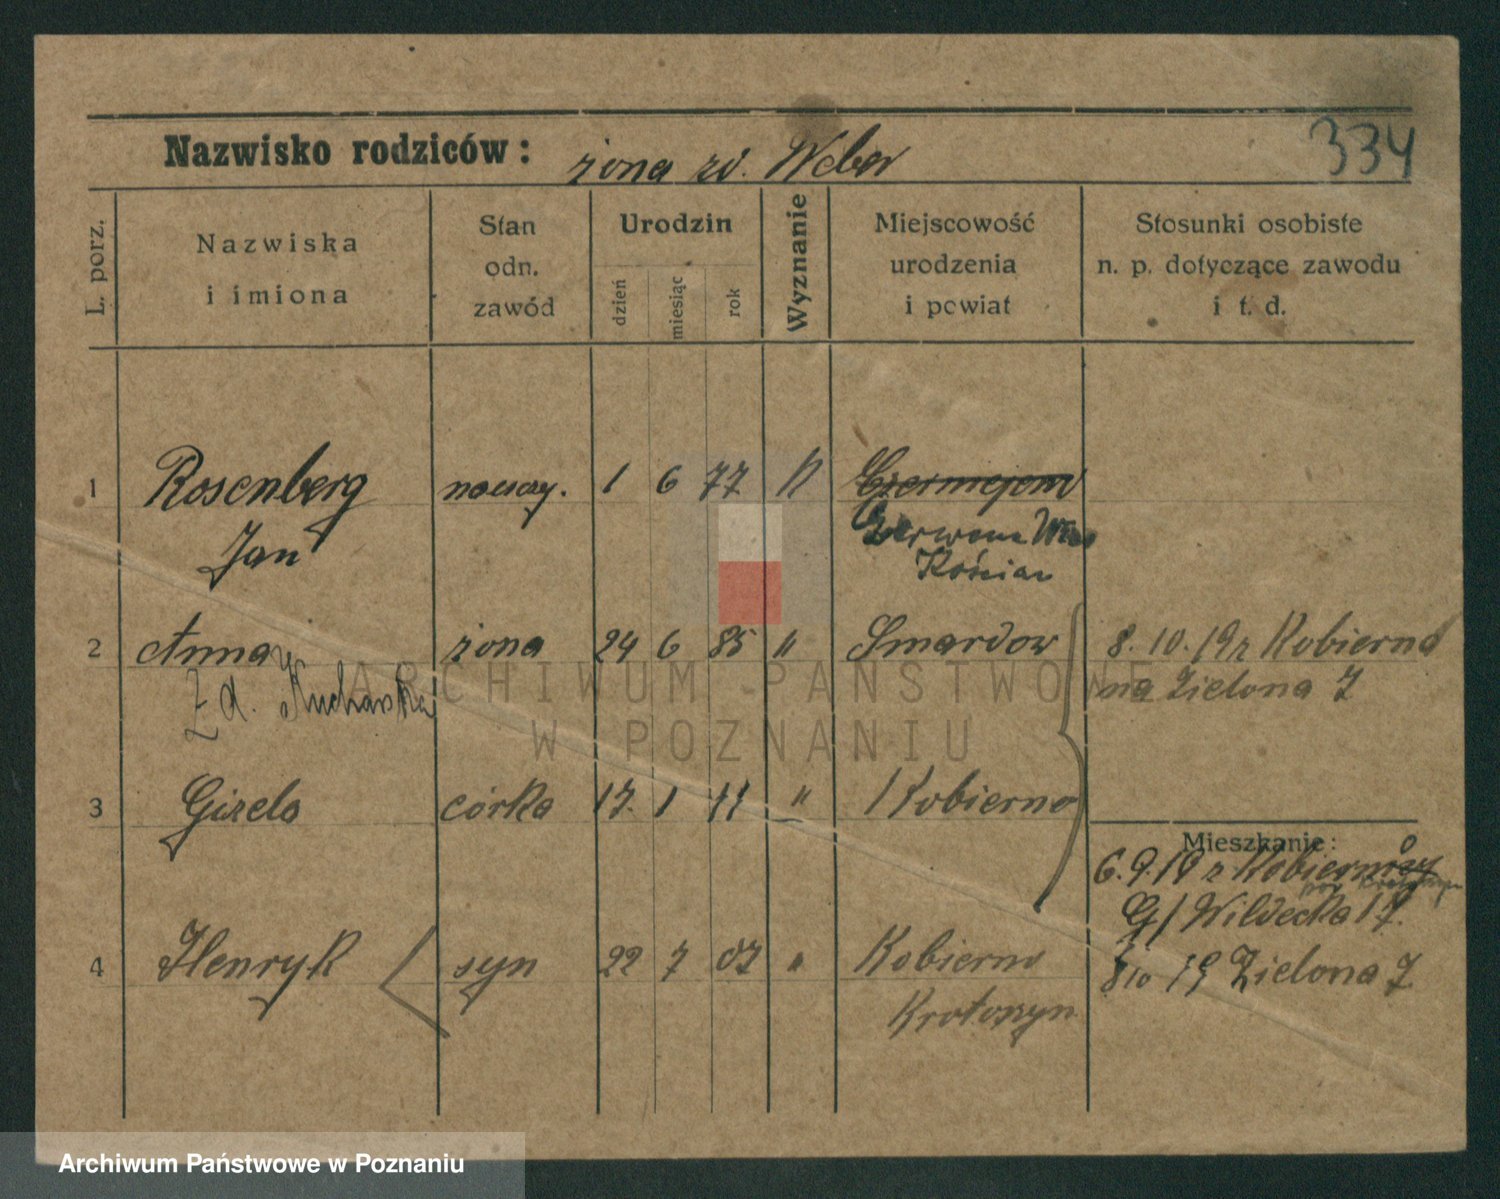 334
Nazwisko rodziców: żona zd. Weber
L. porz.
Nazwiska
i imiona
Stan
odn.
zawód
Urodzin
dzień
miesiąc
rok
Wyznanie
Miejscowość
urodzenia
i powiat
Stosunki osobiste
n. p. dotyczące zawodu
i t. d.
1 Rosenberg naucz. 1 6 77 K
Jan
Czerwona Wieś
Kościan
2 Anna żona 24 6 85 " Smardow 8. 10. 19 z Kobierna
z d. Kucharska na Zielona 7
3 Gizela córka 17. 1 11 " Kobierno
Mieszkanie:
6. 9. 19 z Kobierno
G/ Wildecka 17.
4 Henryk syn 22 7 07 " Kobierno 8/10 19 Zielona 7.
Krotoszyn
ARCHIWUM PAŃSTWOWE
W POZNANIU
Archiwum Państwowe w Poznaniu